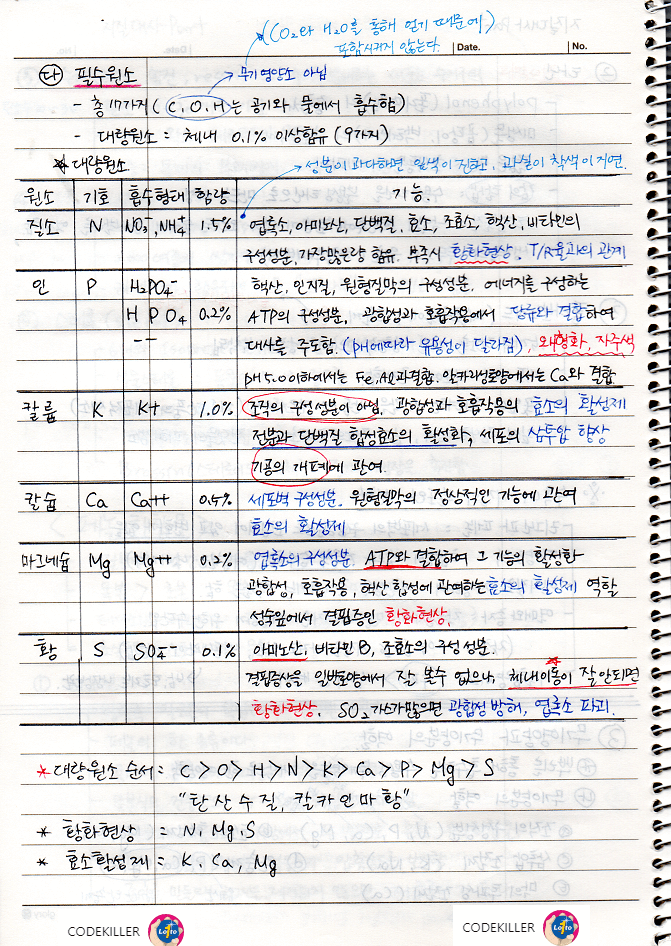 (CO₂와 H₂O를 통해 얻기 때문에)
포함시키지 않는다.
Date. No.
㉰ 필수원소 → 무기영양소 아님
- 총 17가지 (C, O, H는 공기와 물에서 흡수함)
- 대량원소 = 체내 0.1% 이상함유 (9가지)
* 대량원소
성분이 과다하면 잎색이 진하고, 과실이 착색이 지연.
원소 기호 흡수형태 함량 기능.
질소 N NO₃⁻, NH₄⁺ 1.5% 엽록소, 아미노산, 단백질, 효소, 조효소, 핵산, 비타민의
구성성분, 가장많은량 함유. 부족시 황화현상, T/R율과의 관계
인 P H₂PO₄⁻ 핵산, 인지질, 원형질막의 구성성분. 에너지를 구성하는
HPO₄ 0.2% ATP의 구성성분, 광합성과 호흡작용에서 당류와 결합하여
-- 대사를 주도함. (pH에따라 유용성이 달라짐), 왜형화, 자주색
pH 5.0 이하에서는 Fe, Al과 결합. 알카리성토양에서는 Ca와 결합
칼륨 K K+ 1.0% 조직의 구성성분이 아님, 광합성과 호흡작용의 효소의 활성제
전분과 단백질 합성효소의 활성화, 세포의 삼투압 향상
기공의 개폐에 관여
칼슘 Ca Ca++ 0.5% 세포벽 구성성분. 원형질막의 정상적인 기능에 관여
효소의 활성제
마그네슘 Mg Mg++ 0.2% 엽록소의 구성성분. ATP와 결합하여 그 기능의 활성화
광합성, 호흡작용, 핵산 합성에 관여하는 효소의 활성제 역할
성숙잎에서 결핍증인 황화현상.
황 S SO₄-- 0.1% 아미노산, 비타민 B, 조효소의 구성성분.
결핍증상을 일반토양에서 잘 볼수 없으나, 체내이동이 잘 안되면
황화현상. SO₂ 가스가 많으면 광합성 방해, 엽록소 파괴.
* 대량원소 순서 = C > O > H > N > K > Ca > P > Mg > S
"탄산수질, 칼카인마황"
* 황화현상 = N, Mg, S
* 효소활성제 = K, Ca, Mg
CODEKILLER Lotto CODEKILLER Lotto